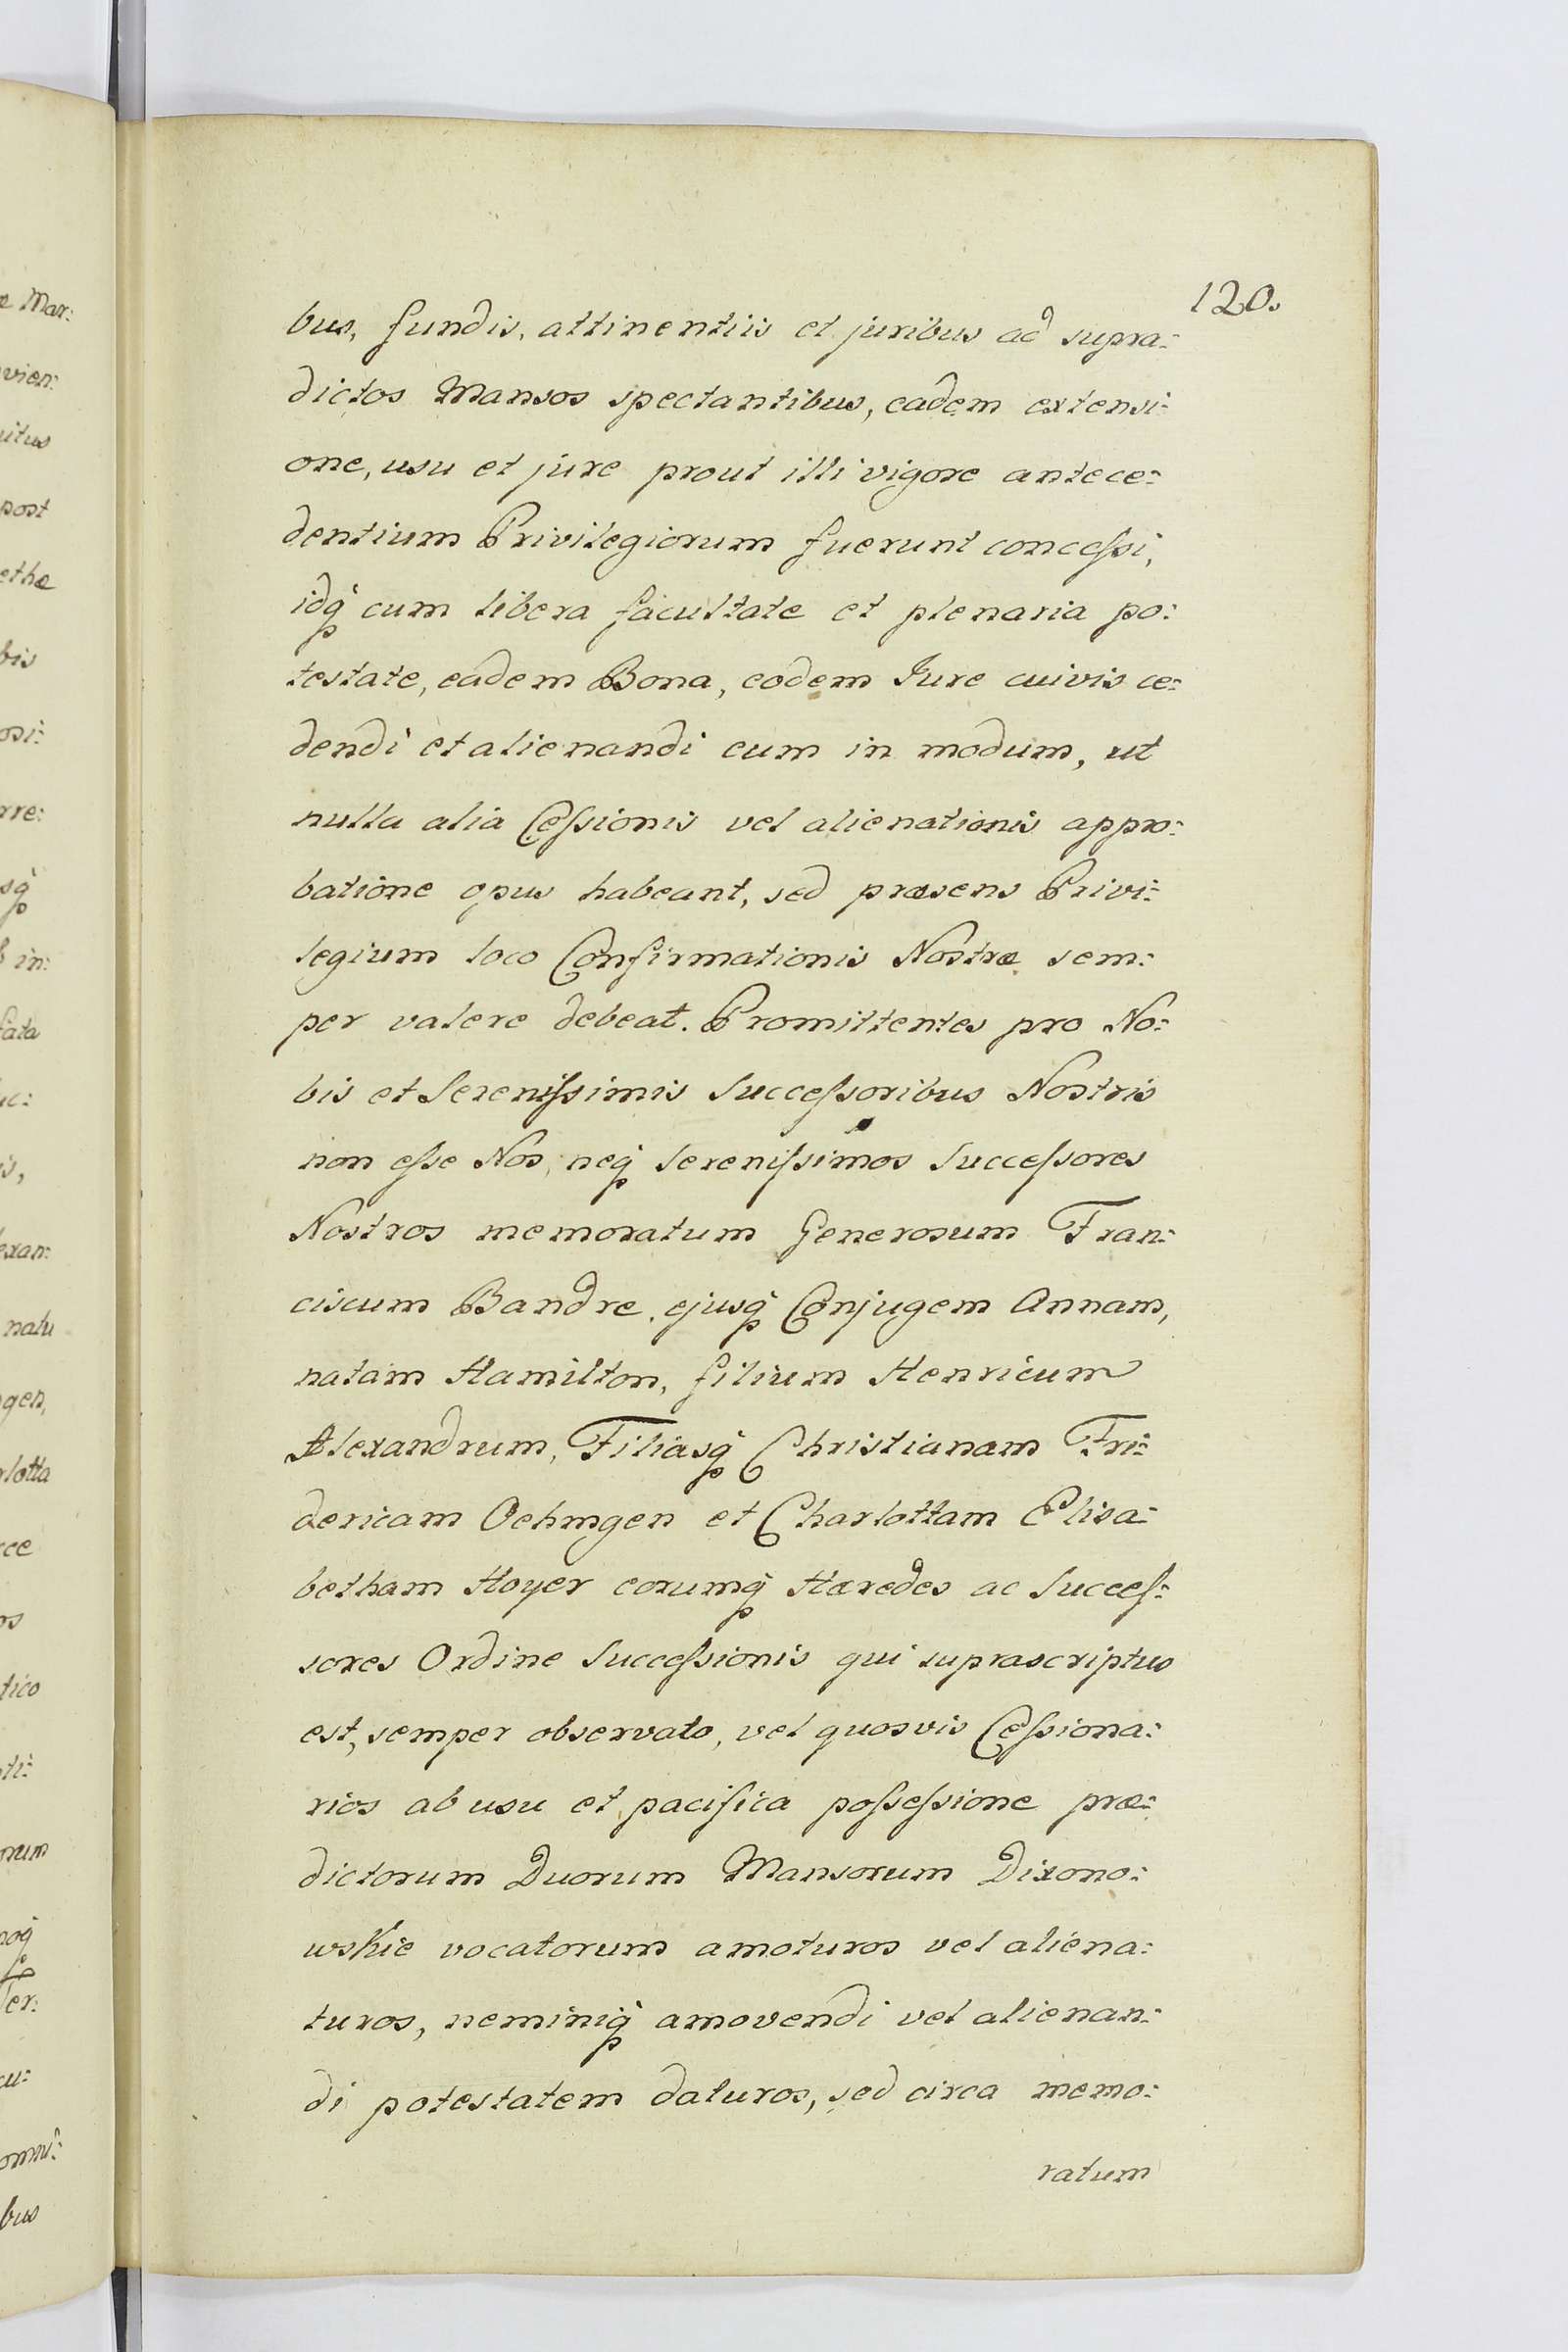 120.
bus, fundis, attinentiis et juribus ad supra:
dictos Mansos spectantibus, eadem extensi:
one, usu et jure prout illi vigore antece:
dentium Privilegiorum fuerunt conceſsi,
idq̃ cum libera facultate et plenaria po:
testate, eadem Bona, eodem Jure cuivis ce:
dendi et alienandi eum in modum, ut
nulla alia Ceſsionis vel alienationis appro:
batione opus habeant, sed præsens Privi:
legium loco Confirmationis Nostræ sem:
per valere debeat. Promittentes pro No:
bis et Sereniſsimis Succeſsoribus Nostris
non eſse Nos, neq̃ Sereniſsimos Succeſsores
Nostros memoratum Generosum Fran:
ciscum Bandre, ejusq̃ Conjugem Annam,
natam Hamilton, filium Henricum
Alexandrum, Filiasq̃ Christianam Fri:
dericam Oehmgen et Charlottam Elisa:
betham Hoyer eorumq̃ Hæredes ac Succeſ:
sores Ordine Succeſsionis qui suprascriptus
est, semper observato, vel quosvis Ceſsiona:
rios ab usu et pacifica poſseſsione præ:
dictorum Duorum Mansorum Dixono:
wskie vocatorum amoturos vel aliena:
turos, neminiq̃ amovendi vel alienan:
di potestatem daturos, sed circa memo:
ratum